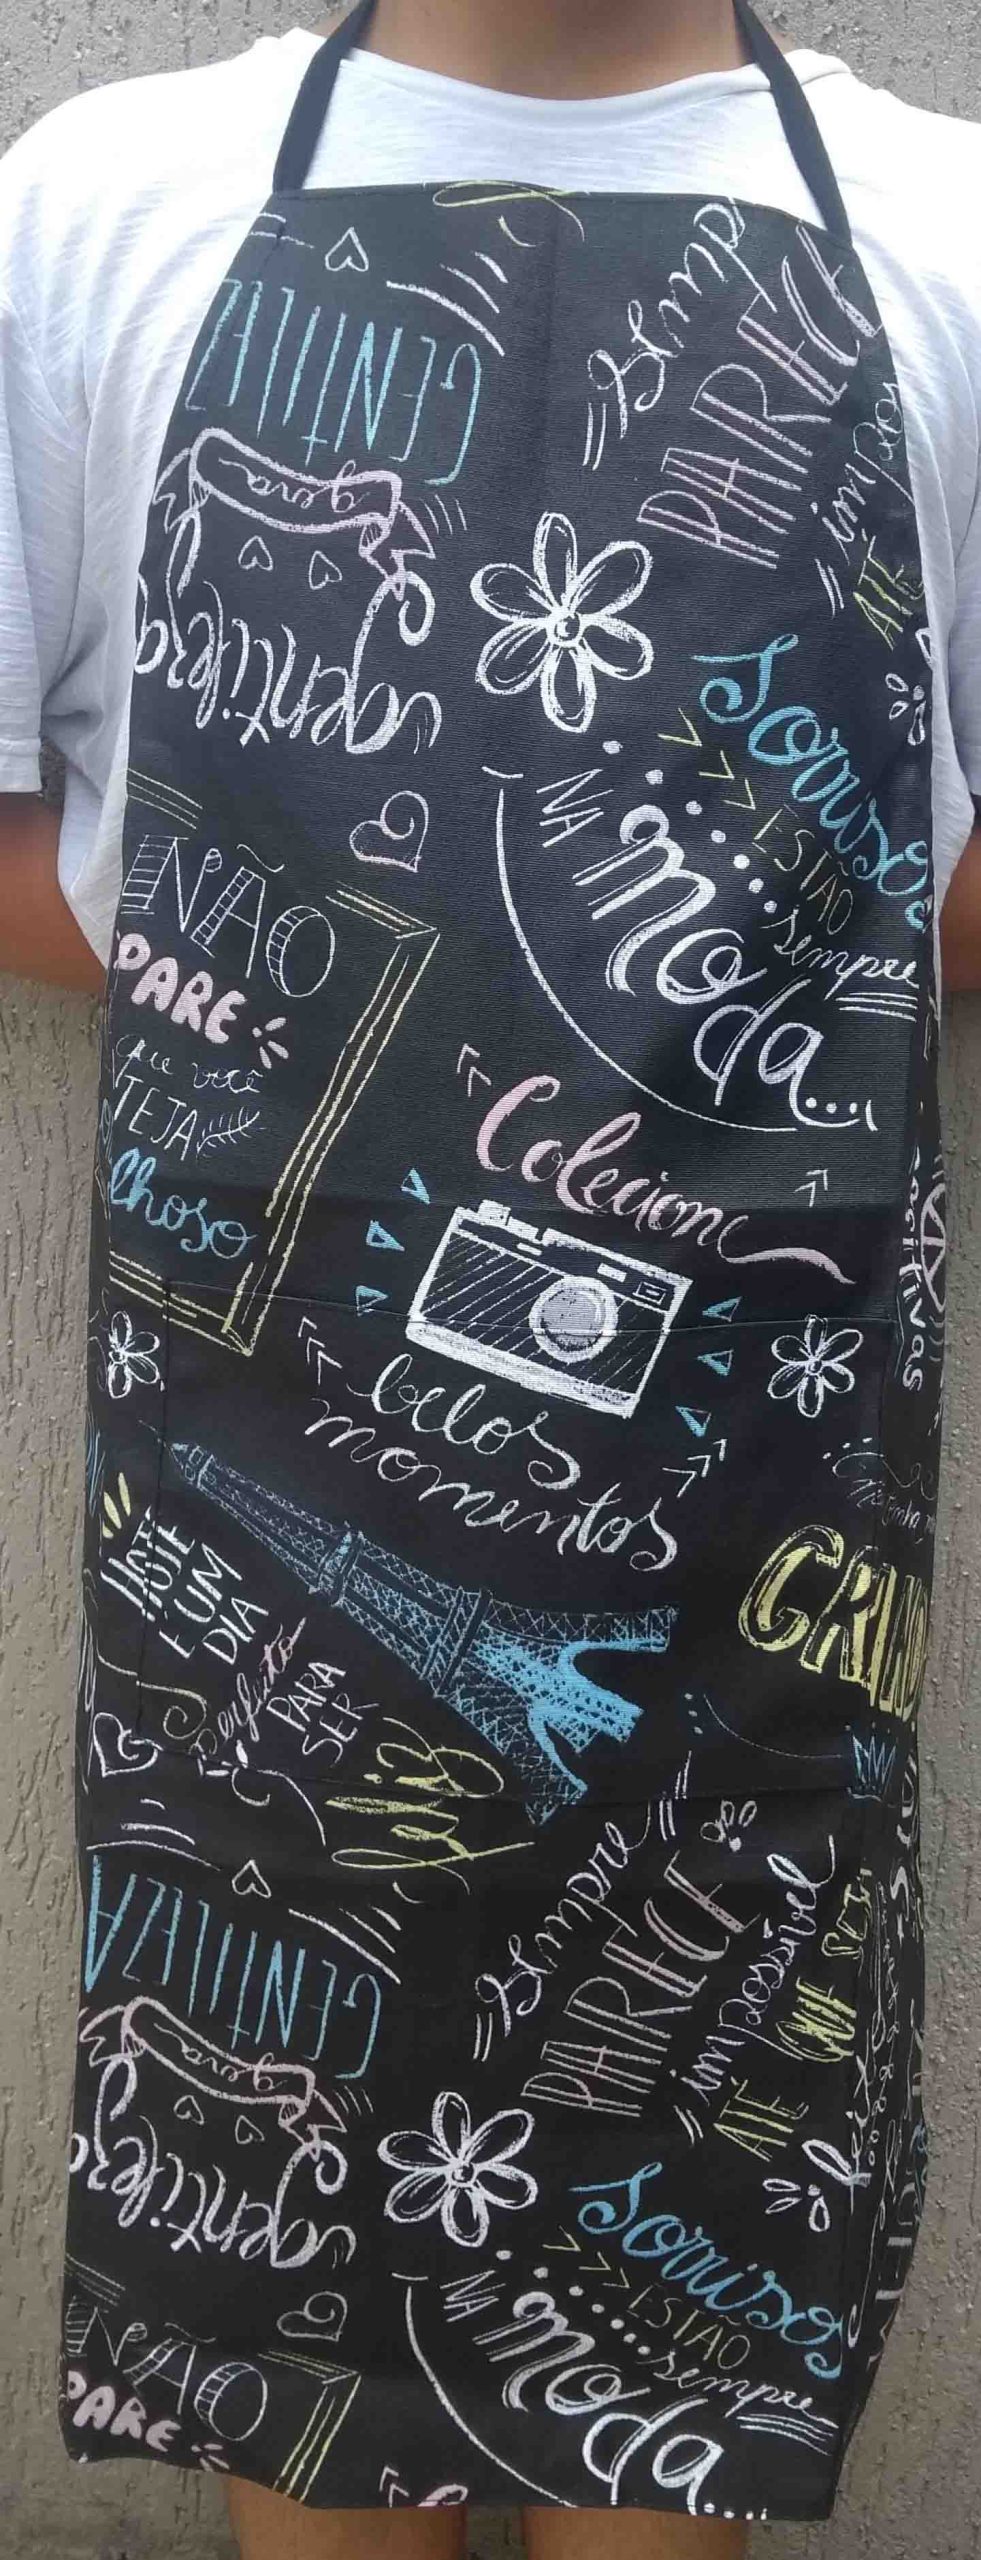 GENTILEZ
gera
gentileza
PARECE
ATÉ
sorrisos
ESTÃO
sempre
NA
moda...
NÃO
PARE
que você
TEJA
lhoso
Colecione
belos
momentos
HOJE
É UM
DIA
Perfeito
PARA
SER
feliz
GENTILEZA
gera
gentileza
sempre
PARECE
impossível
ATÉ
QUE SEJ
sorrisos
ESTÃO
sempre
NA
moda...
NÃO
PARE